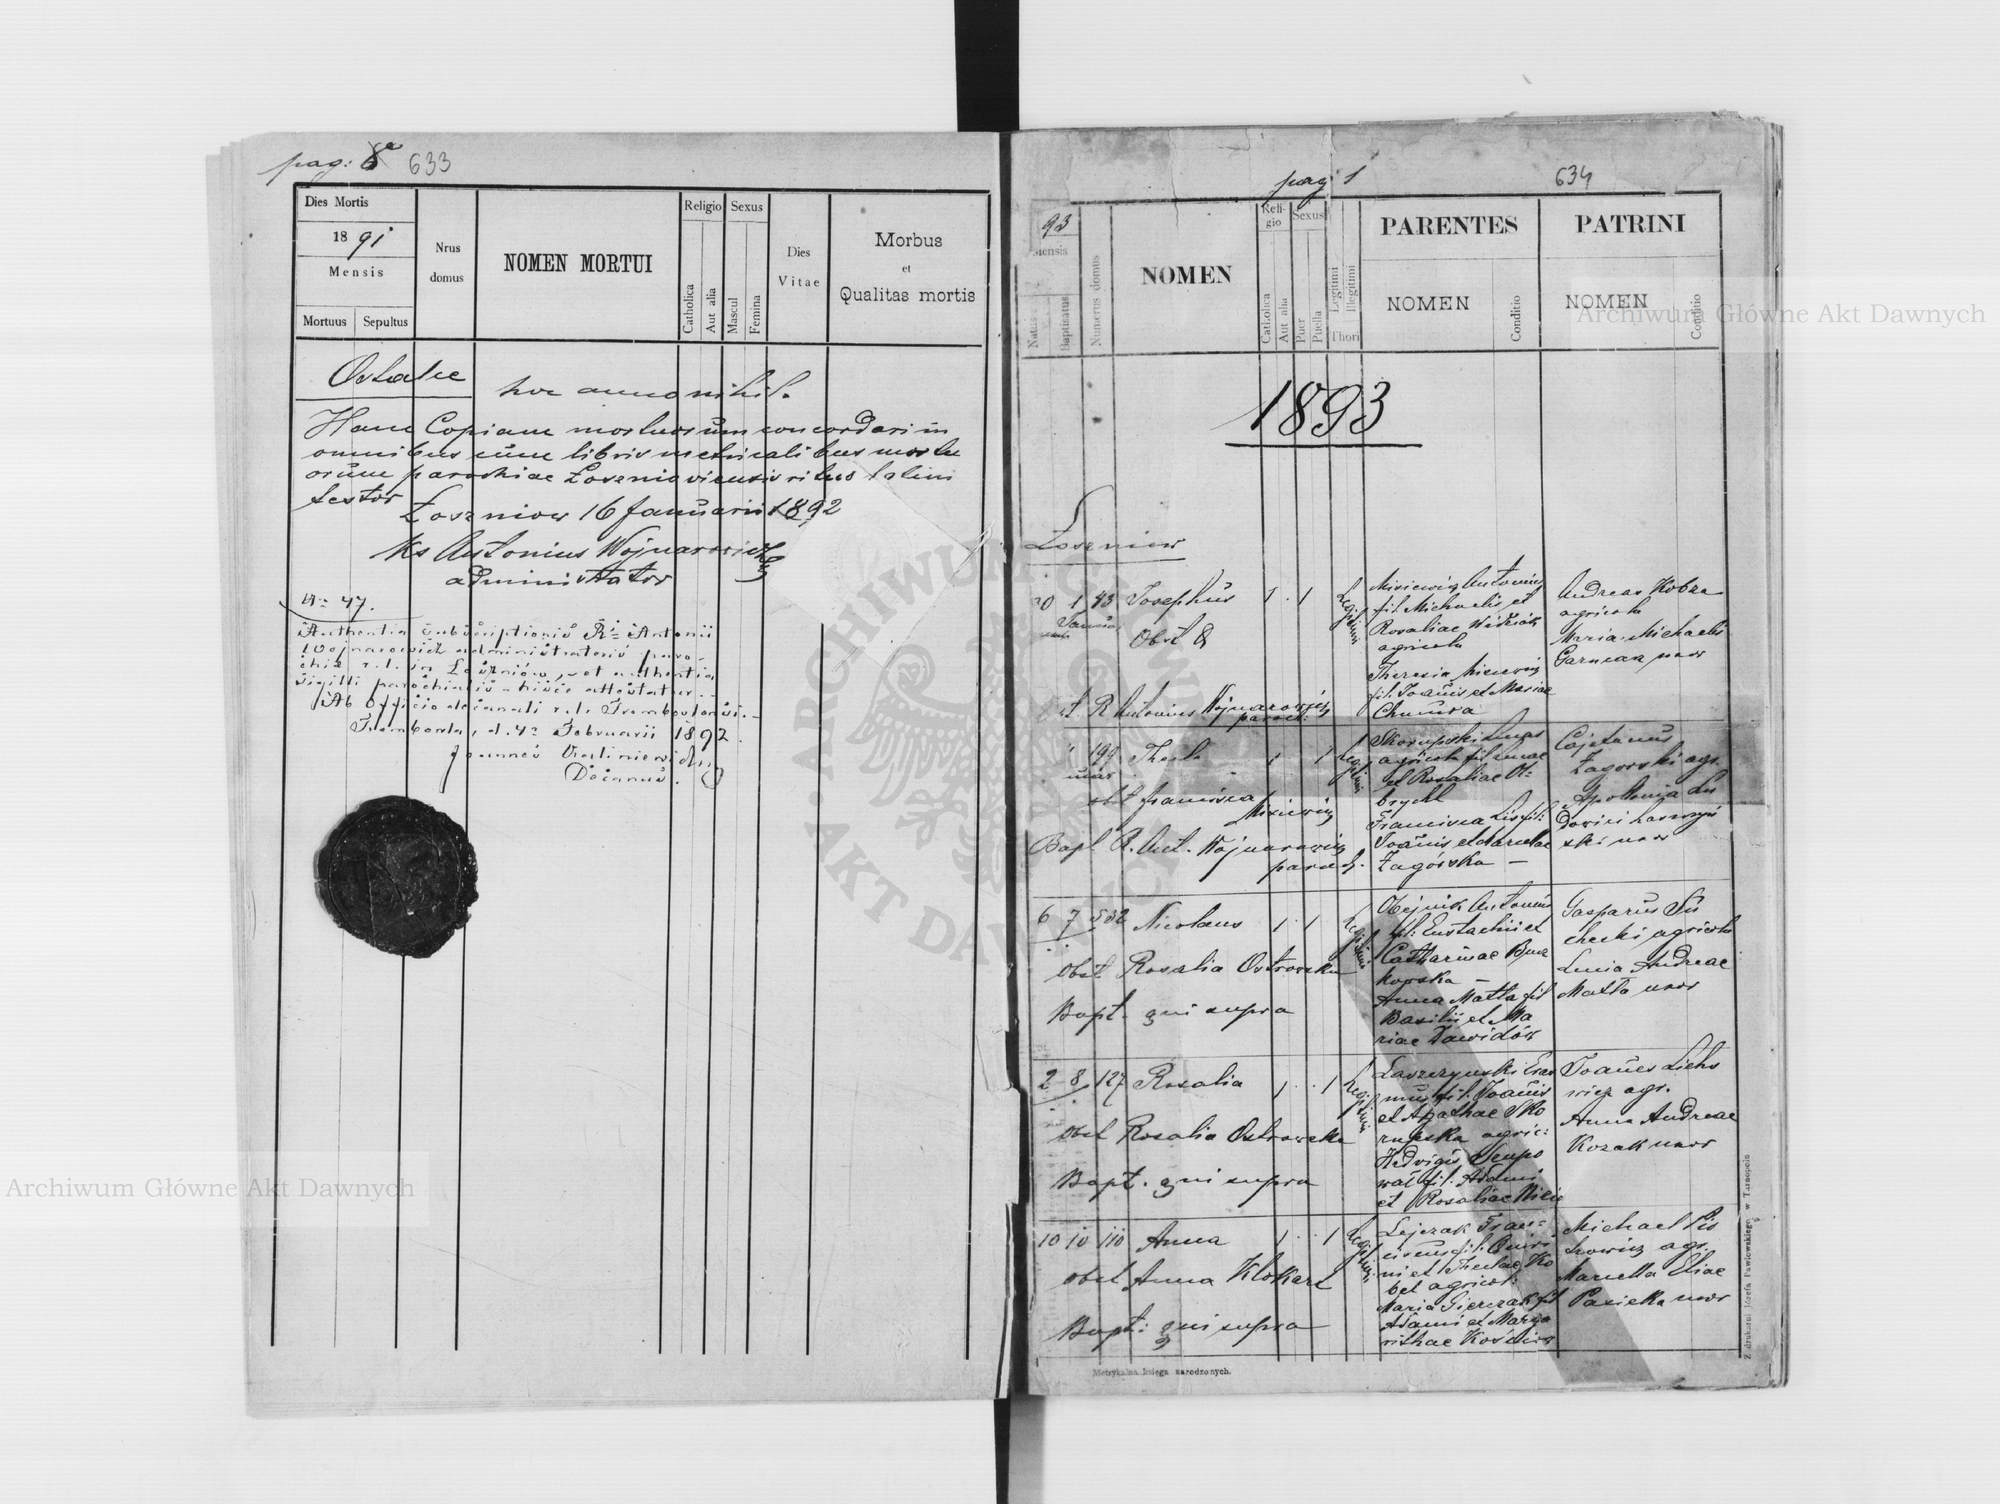 pag: 8a 633
Dies Mortis
1891
Mensis
Mortuus Sepultus
Nrus domus
NOMEN MORTUI
Religio
Catholica
Aut alia
Sexus
Mascul
Femina
Dies Vitae
Morbus
et
Qualitas mortis
Ostalce hoc anno nihil.
Hanc Copiam mortuorum concordari in
omnibus cum libris metricalibus mortu
orum parochiae Łosznioviensis ritus latini
testor
Łoszniow 16 Januarii 1892
Ks Antonius Wojnarowicz
administrator
Nr 47.
Authentia subscriptionis Antonii
Wojnarowicz administratoris paro-
chiae r. l. in Łoszniów, et authentia
sigilli parochialis hisce attestatur.
Ab Officio decanali r. l. Trembovlensi.
Trembowla, d. 4 Februarii 1892.
Joannes
Decanus.
pag 1
634
93
Mensis
Natus
Baptisatus
Numerus domus
NOMEN
Religio
Catholica
Aut alia
Sexus
Puer
Puella
Legitimi
Illegitimi
Thori
PARENTES
NOMEN
Conditio
PATRINI
NOMEN
Conditio
1893
Łoszniow
1 43 Josephus 1 1 Legitimi
Obst
Misiewicz Antonius
fil. Michaelis et
Rosaliae
agricola
Theresia Misiewicz
fil. Joannis et Mariae
Chmura
Andreas Kobza
agricola
Maria Michaelis
Garncarz uxor
R Antonius Wojnarowicz
paroch:
199 Thecla 1 1 Legitimi
obst Francisca
Misiewicz
Bapt R. Ant. Wojnarowicz
paroch.
Skorupski Lucas
agricola fil Lucae
et Rosaliae Ol-
brycht
Francisca Lis fil:
Joannis et Marcellae
Zagórska —
Cajetanus
Zagorski agr.
Apolonia Lu
dovici Laszczyń
ski uxor
6 7 532 Nicolaus 1 1 Legitimi
obst Rosalia Ostrowska
Bapt. qui supra
Olejnik Antonius
fil: Eustachii et
Catharinae Bucz
kowska —
Anna Matla fil
Basilii et Ma
riae Dawidów
Gasparus Su
checki agricola
Lucia Andreae
Matla uxor
2 8 127 Rosalia 1 1 Legitimi
obst Rosalia Ostrowska
Bapt. qui supra
Laszczynski Eras
mus fil. Joannis
et Agathae Sko
rupska agric:
Hedvigis
fil. Adami
et Rosaliae
Joannes Lichs
wicz agr.
Anna Andreae
Kozak uxor
10 10 110 Anna 1 1 Legitimi
obst Anna Klokart
Bapt: qui supra
Lejczak Fran-
ciscus fil:
et Theclae Ko
bel agricol:
Maria Gierczak fil
Adami et Marga
rithae
Michael Pis
agr.
Marcella Eliae
Pasieka uxor
Metrykalna księga narodzonych.
Z drukarni Józefa Pawłowskiego w Tarnopolu
Archiwum Główne Akt Dawnych
Archiwum Główne Akt Dawnych
ARCHIWUM GŁÓWNE AKT DAWNYCH